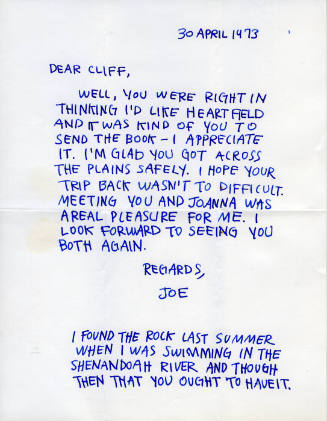 30 APRIL 1973
DEAR CLIFF,
WELL, YOU WERE RIGHT IN
THINKING I'D LIKE HEARTFIELD
AND IT WAS KIND OF YOU TO
SEND THE BOOK - I APPRECIATE
IT. I'M GLAD YOU GOT ACROSS
THE PLAINS SAFELY. I HOPE YOUR
TRIP BACK WASN'T TO DIFFICULT.
MEETING YOU AND JOANNA WAS
A REAL PLEASURE FOR ME. I
LOOK FORWARD TO SEEING YOU
BOTH AGAIN.
REGARDS,
JOE
I FOUND THE ROCK LAST SUMMER
WHEN I WAS SWIMMING IN THE
SHENANDOAH RIVER AND THOUGH
THEN THAT YOU OUGHT TO HAVE IT.